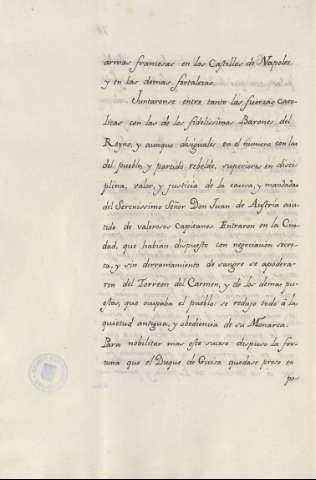 armas francesas en los Castillos de Napoles
y en las demas fortalezas.
Juntaronse entre tanto las fuerzas Cato-
licas con las de los fidelissimos Barones del
Reyno, y aunque desiguales en el numero con las
del pueblo, y partido rebelde, superiores en disci-
plina, valor, y justicia de la causa, y mandadas
del Serenissimo Señor Don Juan de Austria asis-
tido de valerosos Capitanes. Entraron en la Ciu-
dad, que habian dispuesto con negociacion secre-
ta, y sin derramamiento de sangre se apodera-
ron del Torreon del Carmen, y de los demas pue-
stos, que ocupaba el pueblo; se redujo todo á la
quietud antigua, y obediencia de su Monarca.
Para nobilitar mas este suceso dispuso la for-
tuna que el Duque de Guisa quedase preso en
po-